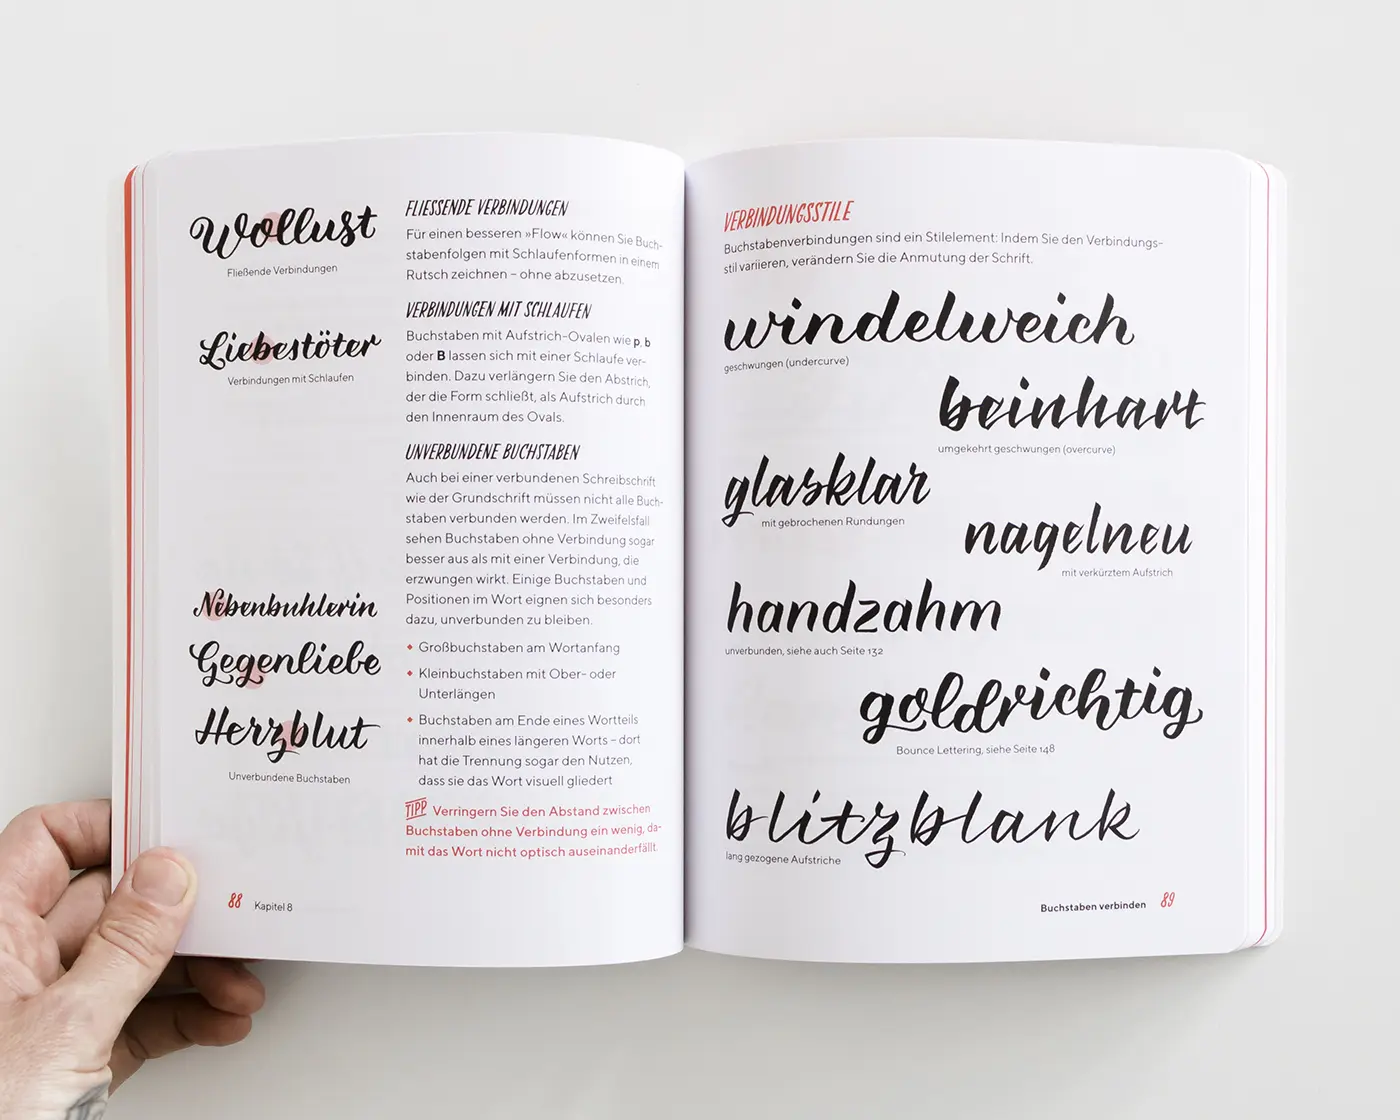 Wollust
Fließende Verbindungen
Liebestöter
Verbindungen mit Schlaufen
Nebenbuhlerin
Gegenliebe
Herzblut
Unverbundene Buchstaben
FLIESSENDE VERBINDUNGEN
Für einen besseren »Flow« können Sie Buch-
stabenfolgen mit Schlaufenformen in einem
Rutsch zeichnen – ohne abzusetzen.
VERBINDUNGEN MIT SCHLAUFEN
Buchstaben mit Aufstrich-Ovalen wie p, b
oder B lassen sich mit einer Schlaufe ver-
binden. Dazu verlängern Sie den Abstrich,
der die Form schließt, als Aufstrich durch
den Innenraum des Ovals.
UNVERBUNDENE BUCHSTABEN
Auch bei einer verbundenen Schreibschrift
wie der Grundschrift müssen nicht alle Buch-
staben verbunden werden. Im Zweifelsfall
sehen Buchstaben ohne Verbindung sogar
besser aus als mit einer Verbindung, die
erzwungen wirkt. Einige Buchstaben und
Positionen im Wort eignen sich besonders
dazu, unverbunden zu bleiben.
Großbuchstaben am Wortanfang
Kleinbuchstaben mit Ober- oder
Unterlängen
Buchstaben am Ende eines Wortteils
innerhalb eines längeren Worts – dort
hat die Trennung sogar den Nutzen,
dass sie das Wort visuell gliedert
TIPP Verringern Sie den Abstand zwischen
Buchstaben ohne Verbindung ein wenig, da-
mit das Wort nicht optisch auseinanderfällt.
88 Kapitel 8
VERBINDUNGSSTILE
Buchstabenverbindungen sind ein Stilelement: Indem Sie den Verbindungs-
stil variieren, verändern Sie die Anmutung der Schrift.
windelweich
geschwungen (undercurve)
beinhart
umgekehrt geschwungen (overcurve)
glasklar
mit gebrochenen Rundungen
nagelneu
mit verkürztem Aufstrich
handzahm
unverbunden, siehe auch Seite 132
goldrichtig
Bounce Lettering, siehe Seite 148
blitzblank
lang gezogene Aufstriche
Buchstaben verbinden 89